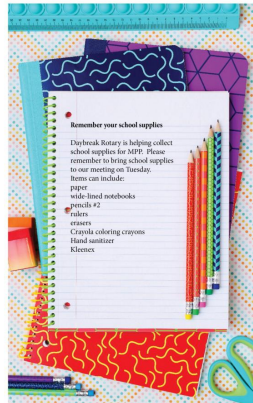 Remember your school supplies
Daybreak Rotary is helping collect
school supplies for MPP.  Please
remember to bring school supplies
to our meeting on Tuesday.
Items can include:
paper
wide-lined notebooks
pencils #2
rulers
erasers
Crayola coloring crayons
Hand sanitizer
Kleenex